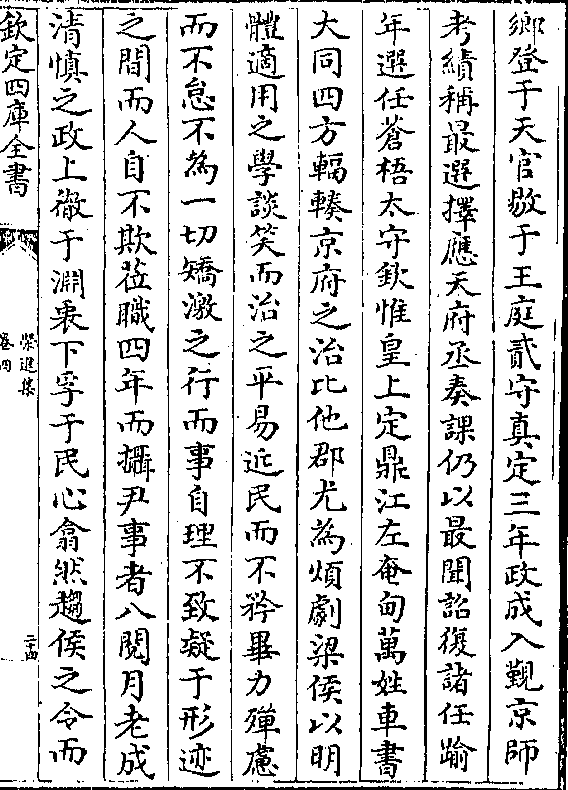 鄉登于天官敭于王庭貳守真定三年政成入覲京師
考績稱最選擇應天府丞奏課仍以最聞詔復諸任踰
年選任蒼梧太守欽惟皇上定鼎江左奄甸萬姓車書
大同四方輻輳京府之治比他郡尤為煩劇梁侯以明
體適用之學談笑而治之平易近民而不矜畢力殫慮
而不怠不為一切矯激之行而事自理不致疑于形迹
之間而人自不欺莅職四年而攝尹事者八閱月老成
清慎之政上徹于淵衷下孚于民心翕然趨侯之令而
欽定四庫全書
榮進集
卷四
二十四